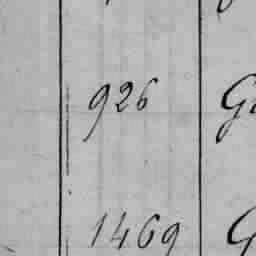 926 G
1469 G